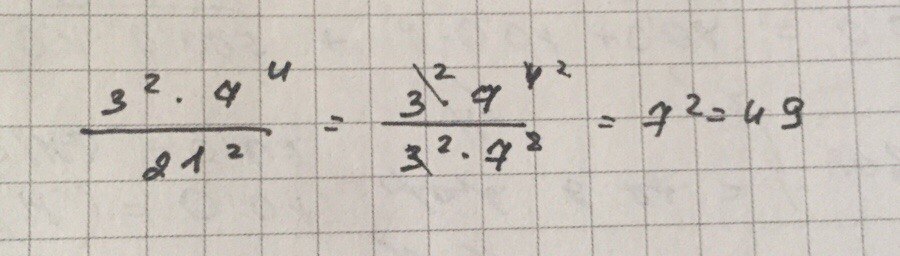 3² · 7⁴ / 21² = 3² · 7⁴ ² / 3² · 7² = 7² = 49